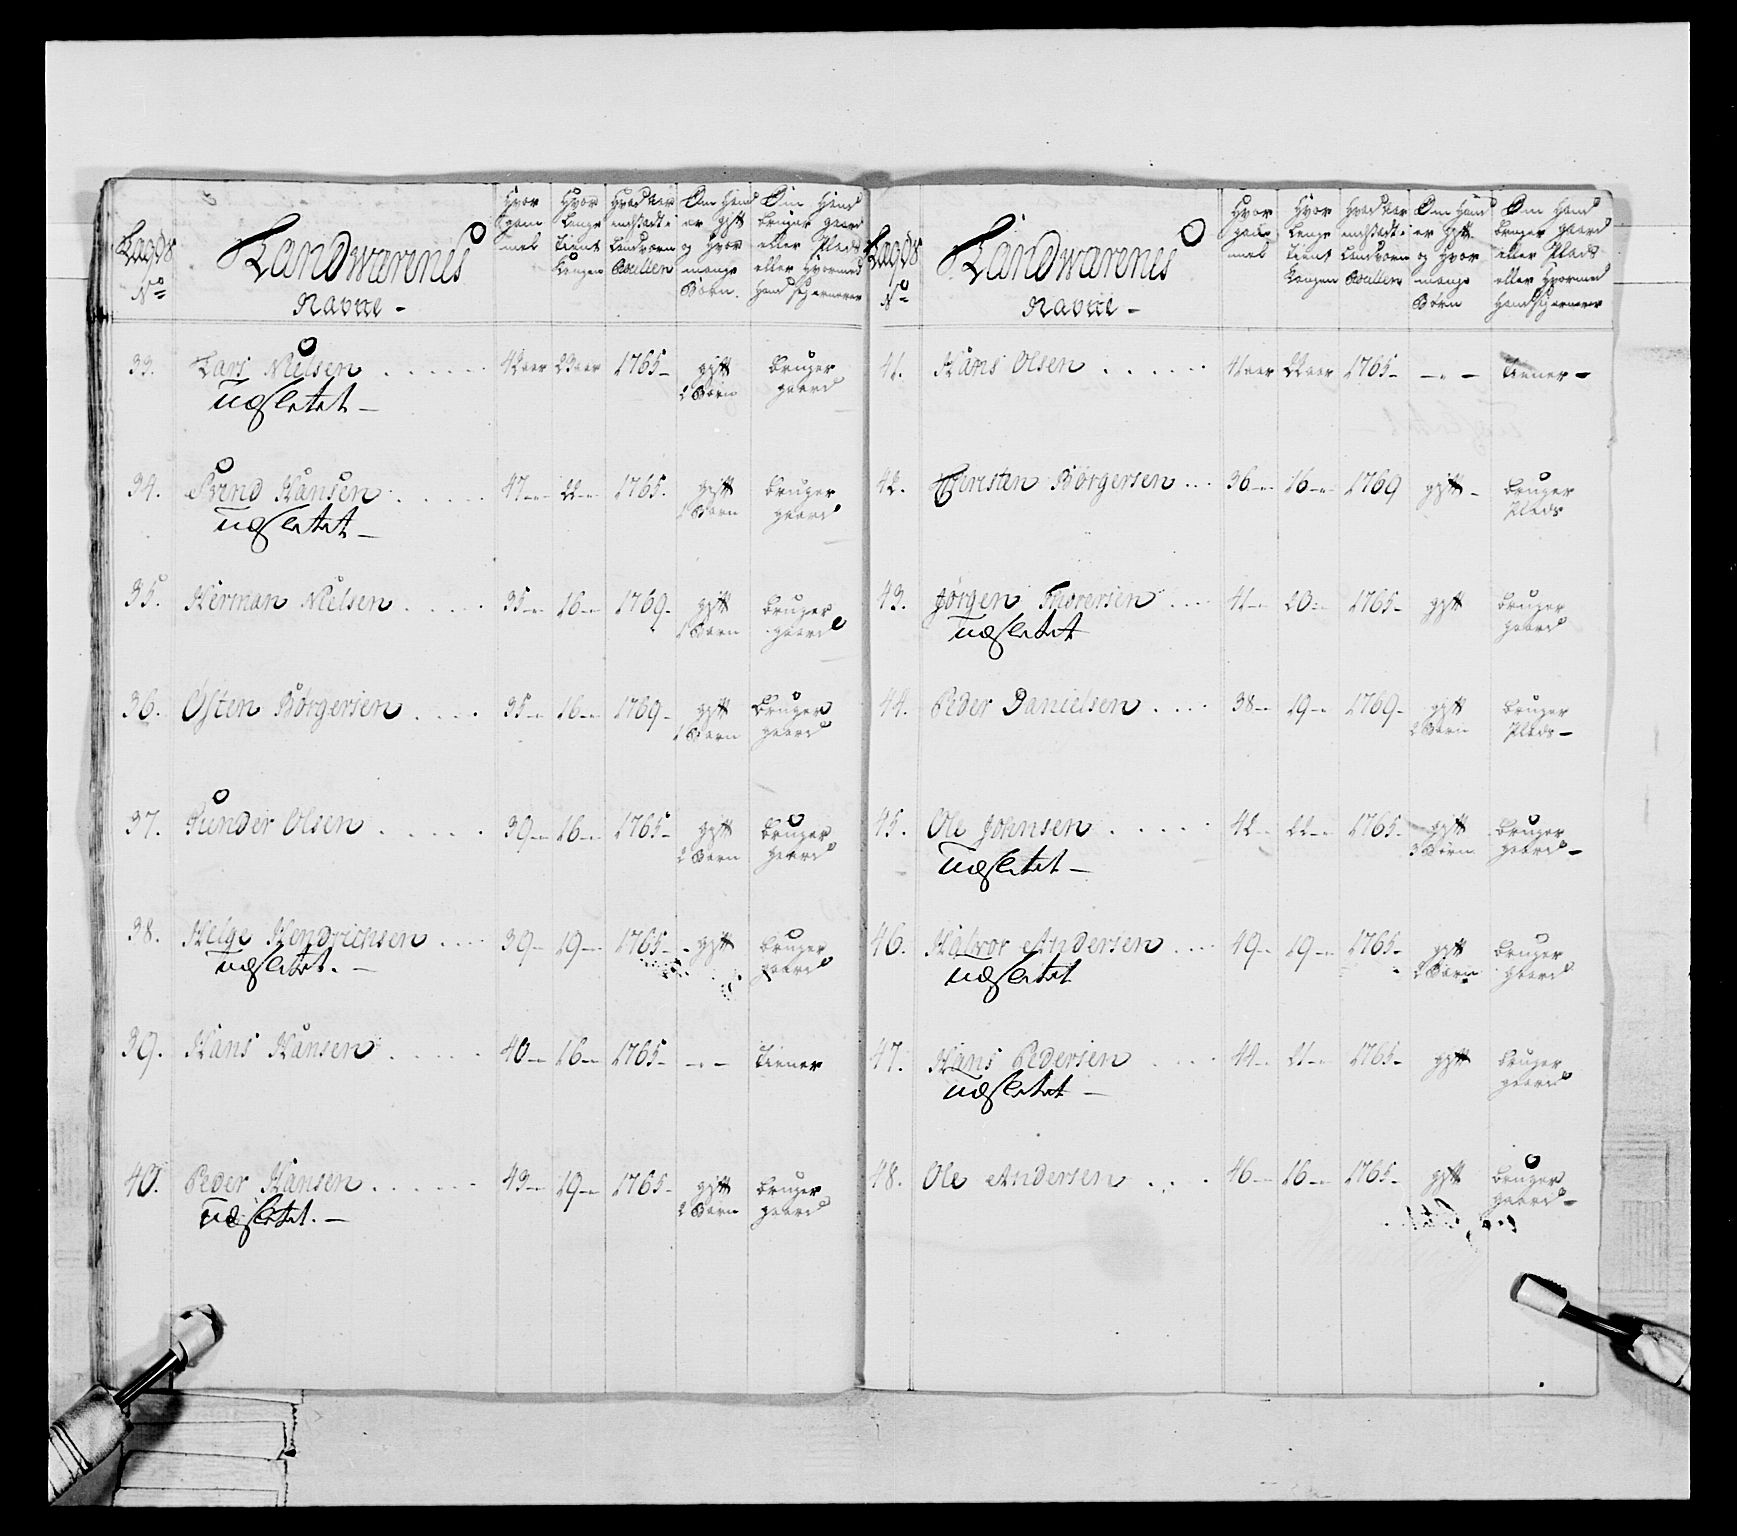 Lagds No
Landwærnes
Navne -
Hvor gam mel
Hvor Lenge tient Kongen
Hvad Aar indsadt i Landværn
Om Hand er gift og hvor mange Børn.
Om Hand bruger gaard eller Plads eller hvormed Hand sig ernerer
33. Lars Nielsen . . . . . . 42 aar 23 aar 1765 - gift 2 Børn bruger gaard
udsletet -
34. Svend Hansen . . . . . 47 -- 22 -- 1765. gift 1 Barn bruger gaard
udsletet -
35. Herman Nielsen . . . . . 35 -- 16 -- 1769 - gift 1 Barn bruger gaard
36. Østen Börgersen . . . . 35 -- 16 -- 1769 - gift 1 Barn bruger gaard
37. Gunder Olsen . . . . . 39 -- 16 -- 1765 - gift 2 Børn bruger gaard
38. Helge Hendrichsen . . . . 39 -- 19 -- 1765 - gift bruger gaard
udsletet. -
39. Hans Hansen . . . . . 40 -- 16 -- 1765 - - . - tiener
40. Peder Hansen . . . . . . 43 -- 19 -- 1765 - gift 2 Børn bruger gaard
udsletet. -
Lagds No
Landwærnes
Navne -
Hvor gam mel
Hvor Lenge tient Kongen
Hvad Aar indsadt i Landværn
Om Hand er gift og hvor mange Børn
Om Hand bruger gaard eller Plads eller hvormed Hand sig ernerer
41. Hans Olsen . . . . . . 41 aar 22 aar 1765 - - . - tiener -
42. Thersten Börgersen . . . 36 -- 16 -- 1769 gift - bruger Plads
43. Jörgen Thoresen . . . . 41 -- 20 -- 1765 - gift bruger gaard
udsletet
44. Peder Danielsen . . . . 38 -- 19 -- 1769 - gift 2 Børn bruger Plads -
45. Ole Johnsen . . . . . 42 -- 22 -- 1765 - gift 3 Børn bruger gaard -
udsletet -
46. Halvor Andersen . . . . 49 -- 19 -- 1765 - gift 2 Børn bruger gaard
udsletet
47. Hans Pedersen . . . . 44 -- 21 -- 1765 - gift bruger gaard
udsletet -
48. Ole Andersen . . . . 46 -- 16 -- 1765 - gift bruger gaard -